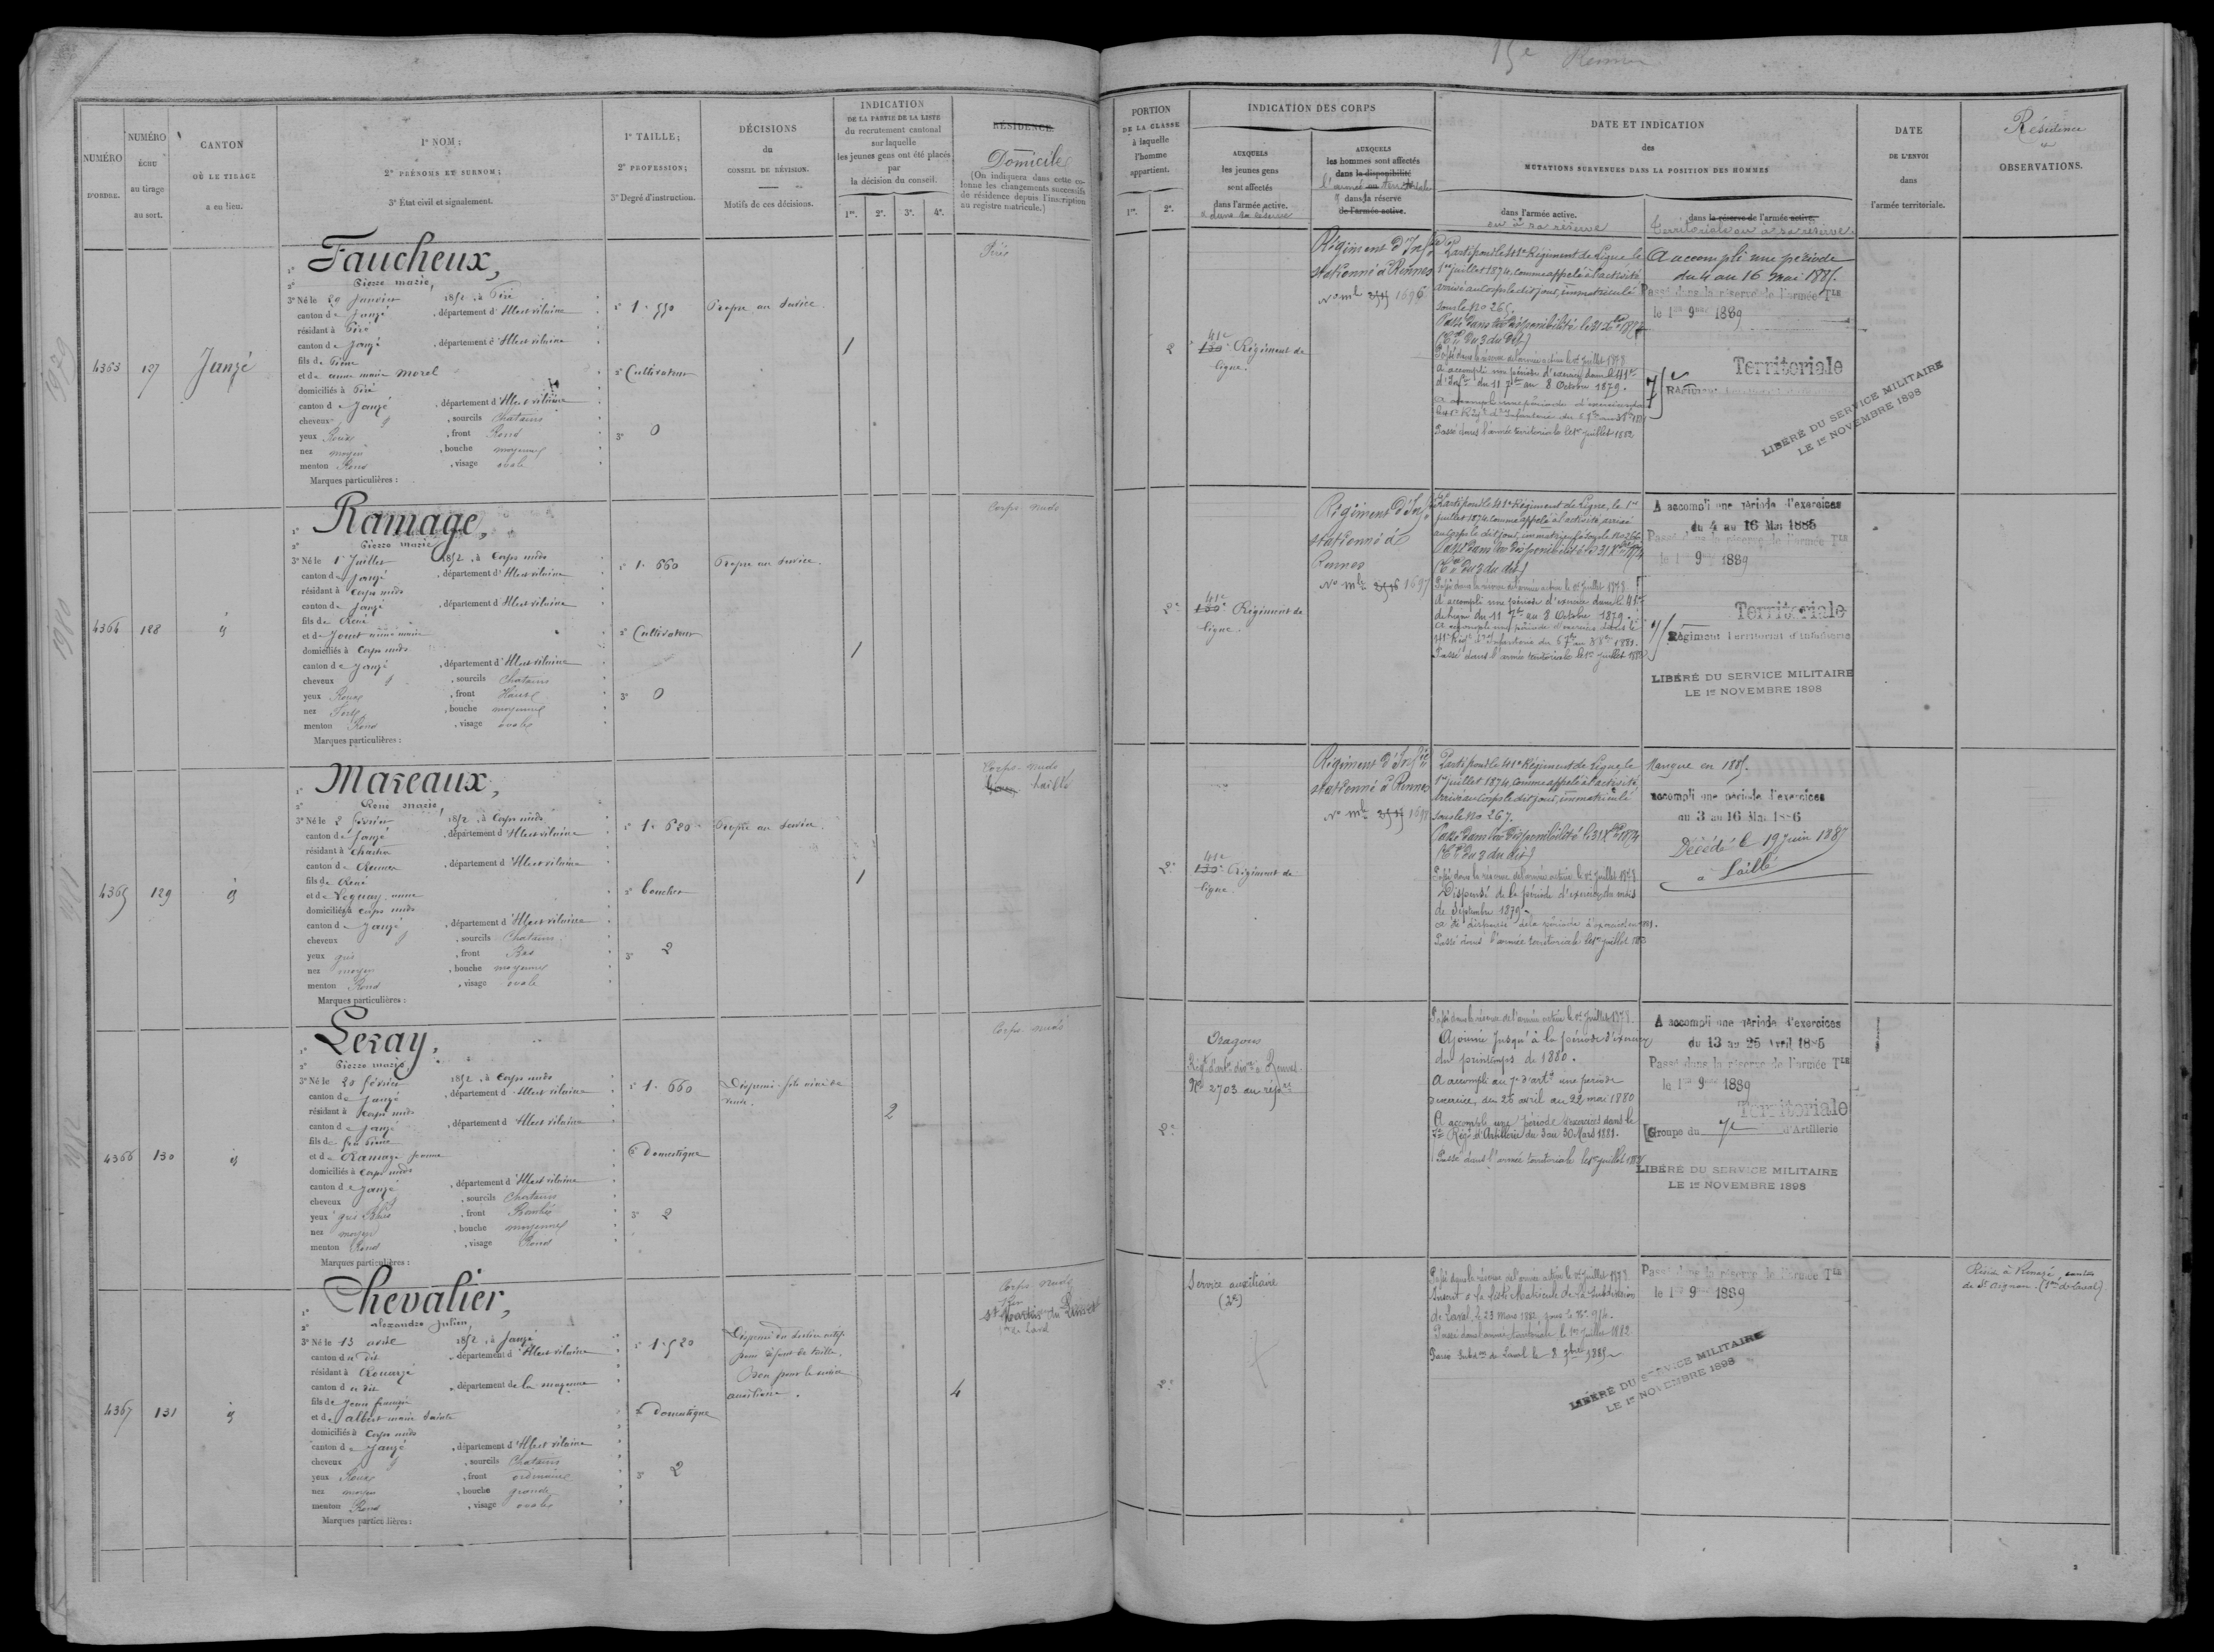 15e Rennes
NUMÉRO
D'ORDRE.
NUMÉRO
ÉCHU
au tirage
au sort.
CANTON
OÙ LE TIRAGE
a eu lieu.
1° NOM;
2° PRÉNOMS ET SURNOM;
3° État civil et signalement.
1° TAILLE;
2° PROFESSION;
3° Degré d'instruction.
DÉCISIONS
du
CONSEIL DE RÉVISION.
Motifs de ces décisions.
INDICATION
DE LA PARTIE DE LA LISTE
du recrutement cantonal
sur laquelle
les jeunes gens ont été placés
par
la décision du conseil.
1re. 2e. 3e. 4e.
RÉSIDENCE
Domicile
(On indiquera dans cette co-
lonne les changements successifs
de résidence depuis l'inscription
au registre matricule.)
PORTION
DE LA CLASSE
à laquelle
l'homme
appartient.
1re. 2e.
INDICATION DES CORPS
AUXQUELS
les jeunes gens
sont affectés
dans l'armée active.
& dans sa réserve
AUXQUELS
les hommes sont affectés
dans la disponibilité
l'armée ou territoriale
& dans la réserve
de l'armée active.
DATE ET INDICATION
des
MUTATIONS SURVENUES DANS LA POSITION DES HOMMES
dans l'armée active.
ou à sa réserve
dans la réserve de l'armée active.
territoriale ou à sa réserve
DATE
DE L'ENVOI
dans
l'armée territoriale.
Résidence
et
OBSERVATIONS.
4363
127
Janzé
Faucheux,
2° Pierre marie,
3° Né le 20 Janvier 1852, à Piré
canton de Janzé, département d'Ille et vilaine
résidant à Piré
canton de Janzé, département d'Ille et vilaine
fils de Pierre
et de anne marie Morel
domiciliés à Piré
canton de Janzé, département d'Ille et vilaine
cheveux, sourcils Chatains
yeux Roux, front Rond
nez moyen, bouche moyenne
menton Rond, visage ovale
Marques particulières :
1° 1.550
2° Cultivateur
3° 0
Propre au Service.
1
Piré
2
41e
130e Régiment de
ligne.
Régiment d'Infie
stationné à Rennes
No ml 3555 1696
Parti pour le 41e Régiment de Ligne le
1er juillet 1874, comme appelé à l'activité
arrivé au Corps le dit jour, immatriculé
sous le No 265.
Passé dans la disponibilité le 31 Xbre 1874
Passé dans la réserve de l'armée active le 1er Juillet 1878
a accompli une période d'exercices dans le 41e
d'Infie du 11 7bre au 8 Octobre 1879.
Passé dans l'armée territoriale le 1er juillet 1882
A accompli une période
du 4 au 16 mai 1885.
Passé dans la réserve de l'armée Tle
le 1er 9bre 1889
Territoriale
LIBÉRÉ DU SERVICE MILITAIRE
LE 1er NOVEMBRE 1898
4364
128
id
Ramage,
2° Pierre marie
3° Né le 1er Juillet 1852, à Corps nuds
canton de Janzé, département d'Ille et vilaine
résidant à Corps nuds
canton de Janzé, département d'Ille et vilaine
fils de René
et de Jouet anne marie
domiciliés à Corps nuds
canton de Janzé, département d'Ille et vilaine
cheveux, sourcils Chatains
yeux Roux, front Haut
nez Fort, bouche moyenne
menton Rond, visage ovale
Marques particulières :
1° 1.660
2° Cultivateur
3° 0
Propre au Service.
1
Corps nuds
2e
41e
130e Régiment de
ligne.
Régiment d'Infie
stationné à
Rennes
No ml 3556 1697
Parti pour le 41e Régiment de Ligne, le 1er
juillet 1874 comme appelé à l'activité, arrivé
au Corps le dit jour, immatriculé sous le No 266
Passé dans la disponibilité le 31 Xbre 1874
Passé dans la réserve de l'armée active le 1er Juillet 1878
A accompli une période d'exercice dans le 41e
de ligne du 11 7bre au 8 Octobre 1879.
A accompli une période d'exercices dans le
41e Régt d'Infanterie du 6 7bre au 3 8bre 1881.
Passé dans l'armée territoriale le 1er juillet 1882
A accompli une période d'exercices
du 4 au 16 Mai 1885
Passé dans la réserve de l'armée Tle
le 1er 9bre 1889
Territoriale
Régiment Territorial d'Infanterie
LIBÉRÉ DU SERVICE MILITAIRE
LE 1er NOVEMBRE 1898
4365
129
id
Mareaux,
2° René marie,
3° Né le 2 février 1852, à Corps nuds
canton de Janzé, département d'Ille et vilaine
résidant à Chartres
canton de Rennes, département d'Ille et vilaine
fils de René
et de Leguay anne
domiciliés à Corps nuds
canton de Janzé, département d'Ille et vilaine
cheveux, sourcils Chatains
yeux gris, front Bas
nez moyen, bouche moyenne
menton Rond, visage ovale
Marques particulières :
1° 1.680
2° boucher
3° 2
Propre au Service.
1
Corps-nuds
Laillé
2e
41e
130e Régiment de
ligne.
Régiment d'Infie
stationné à Rennes
No ml 3557 1698
Parti pour le 41e Régiment de Ligne, le
1er juillet 1874 comme appelé à l'activité,
arrivé au Corps le dit jour, immatriculé
sous le No 267.
Passé dans la disponibilité le 31 Xbre 1874
Passé dans la réserve de l'armée active le 1er Juillet 1878
Dispensé de la période d'exercices du mois
de Septembre 1879.
a été dispensé de la période d'exercices en 1881.
Passé dans l'armée territoriale le 1er juillet 1882
Manque en 1885.
accompli une période d'exercices
du 3 au 16 Mai 1886
Décédé le 19 juin 1887
à Laillé
4366
130
id
Leray,
2° Pierre marie,
3° Né le 20 février 1852, à Corps nuds
canton de Janzé, département d'Ille et vilaine
résidant à Corps nuds
canton de Janzé, département d'Ille et vilaine
fils de feu Pierre
et de Ramage Jeanne
domiciliés à Corps nuds
canton de Janzé, département d'Ille et vilaine
cheveux, sourcils Chatains
yeux gris bleus, front Bombé
nez moyen, bouche moyenne
menton Rond, visage Rond
Marques particulières :
1° 1.660
2° Domestique
3° 2
Dispensé fils aîné de
veuve.
2
Corps-nuds
2e
Dragons
Régt d'artie divre à Rennes
No 2703 au répre
Passé dans la réserve de l'armée active le 1er Juillet 1878.
Ajourné jusqu'à la période d'exercices
du printemps de 1880.
A accompli au 7e d'artie une période
d'exercice, du 26 avril au 22 mai 1880
A accompli une période d'exercices dans le
7e Régt d'Artillerie du 3 au 30 Mars 1881.
Passé dans l'armée territoriale le 1er juillet 1882
A accompli une période d'exercices
du 13 au 25 Avril 1885
Passé dans la réserve de l'armée Tle
le 1er 9bre 1889
Territoriale
Groupe du 7e d'Artillerie
LIBÉRÉ DU SERVICE MILITAIRE
LE 1er NOVEMBRE 1898
4367
131
id
Chevalier,
2° alexandre Julien,
3° Né le 13 avril 1852, à Janzé
canton du dit, département d'Ille et vilaine
résidant à Renazé
canton du dit, département de la mayenne
fils de Jean françois
et de albert marie Sainte
domiciliés à Corps nuds
canton de Janzé, département d'Ille et vilaine
cheveux, sourcils Chatains
yeux Roux, front ordinaire
nez moyen, bouche grande
menton Rond, visage ovale
Marques particulières :
1° 1.520
2° Domestique
3° 2
Dispensé du service actif
pour défaut de taille.
Bon pour le service
auxiliaire.
4
Corps-nuds
St Martin du Limet
2e
Service auxiliaire
Passé dans la réserve de l'armée active le 1er Juillet 1878
Inscrit à la liste Matricule de la Subdivision
de Laval, le 23 Mars 1882, sous le No 914.
Passé dans l'armée territoriale le 1er Juillet 1882
Passé Subdon de Laval le 8 7bre 1885
Passé dans la réserve de l'armée Tle
le 1er 9bre 1889
LIBÉRÉ DU SERVICE MILITAIRE
LE 1er NOVEMBRE 1898
Réside à Renazé, canton
de St Aignan (Son de Laval)